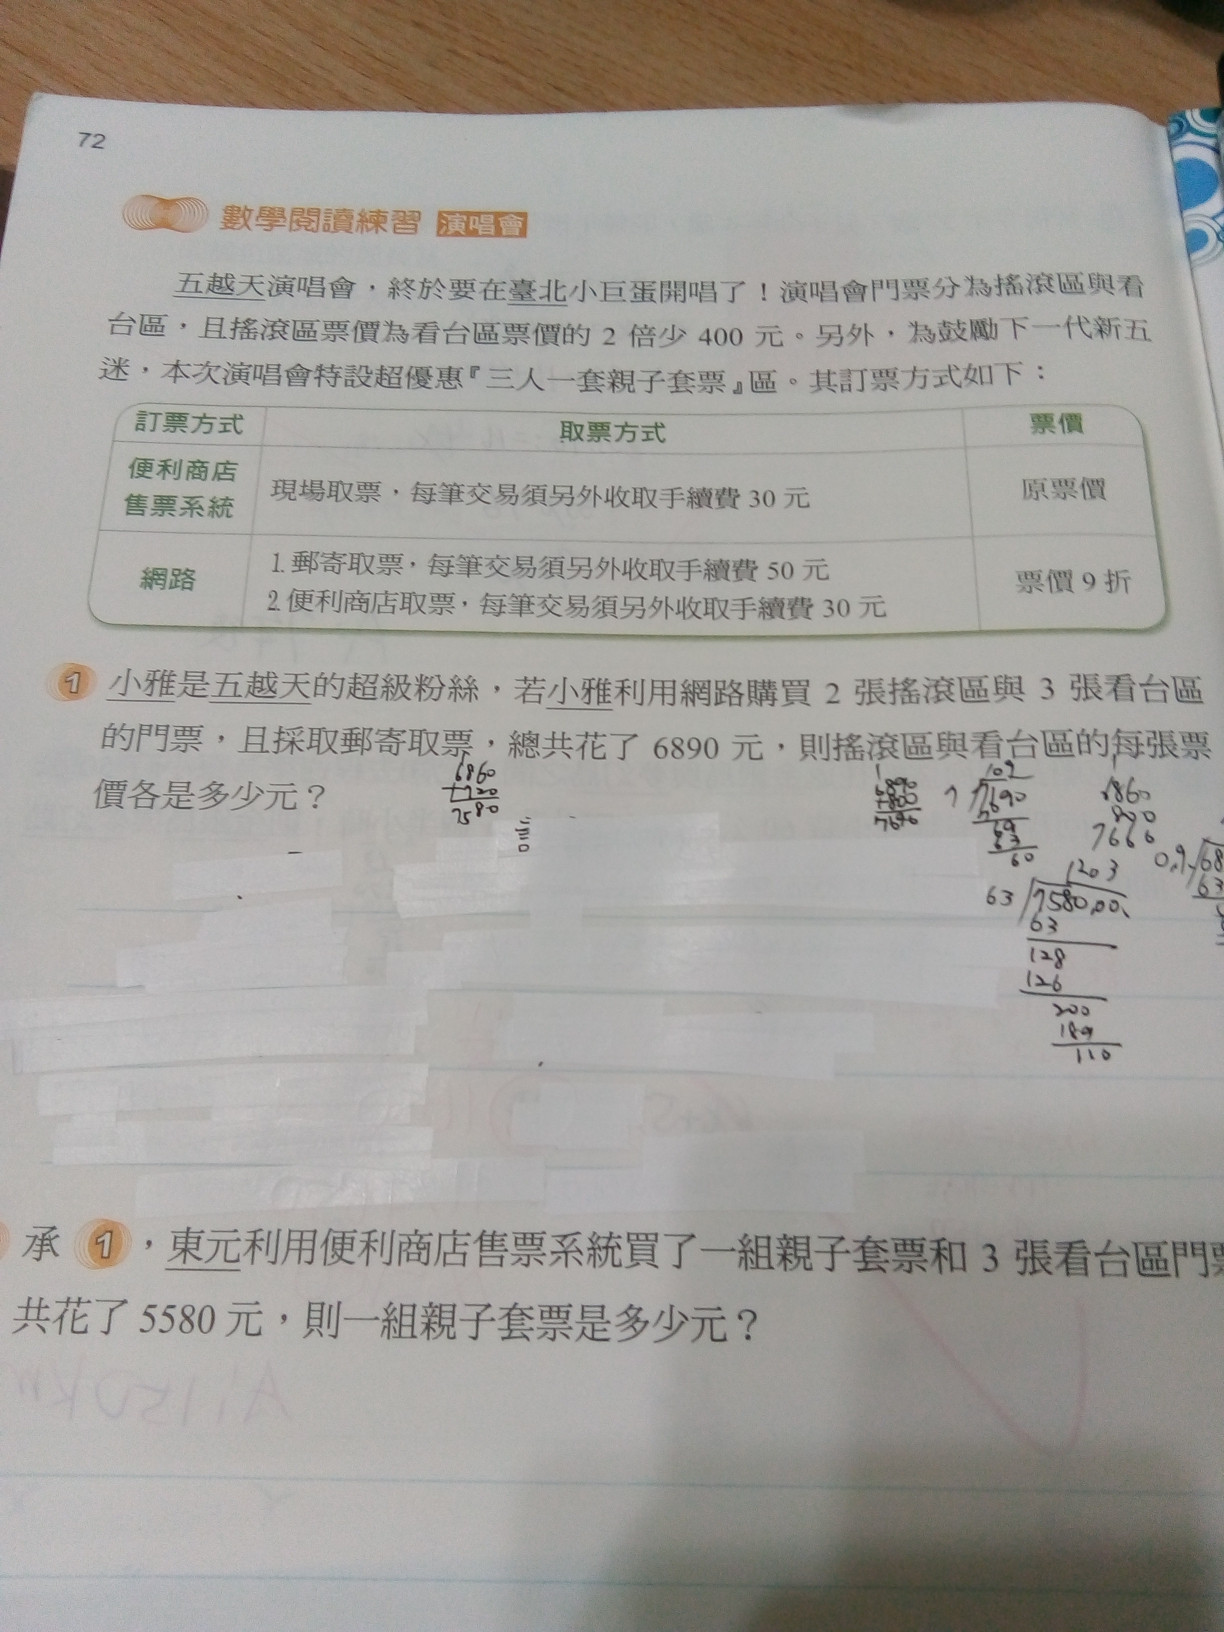 72
數學閱讀練習 演唱會
五越天演唱會，終於要在臺北小巨蛋開唱了！演唱會門票分為搖滾區與看
台區，且搖滾區票價為看台區票價的 2 倍少 400 元。另外，為鼓勵下一代新五
迷，本次演唱會特設超優惠『三人一套親子套票』區。其訂票方式如下：
訂票方式 取票方式 票價
便利商店
售票系統
現場取票，每筆交易須另外收取手續費 30 元
原票價
網路
1. 郵寄取票，每筆交易須另外收取手續費 50 元
2. 便利商店取票，每筆交易須另外收取手續費 30 元
票價 9 折
1 小雅是五越天的超級粉絲，若小雅利用網路購買 2 張搖滾區與 3 張看台區
的門票，且採取郵寄取票，總共花了 6890 元，則搖滾區與看台區的每張票
價各是多少元？
6860
+720
7580
109
7 7690
69
63
60
1860
800
7666
1203
63 7580.00
63
128
126
200
189
110
承 1，東元利用便利商店售票系統買了一組親子套票和 3 張看台區門
共花了 5580 元，則一組親子套票是多少元？